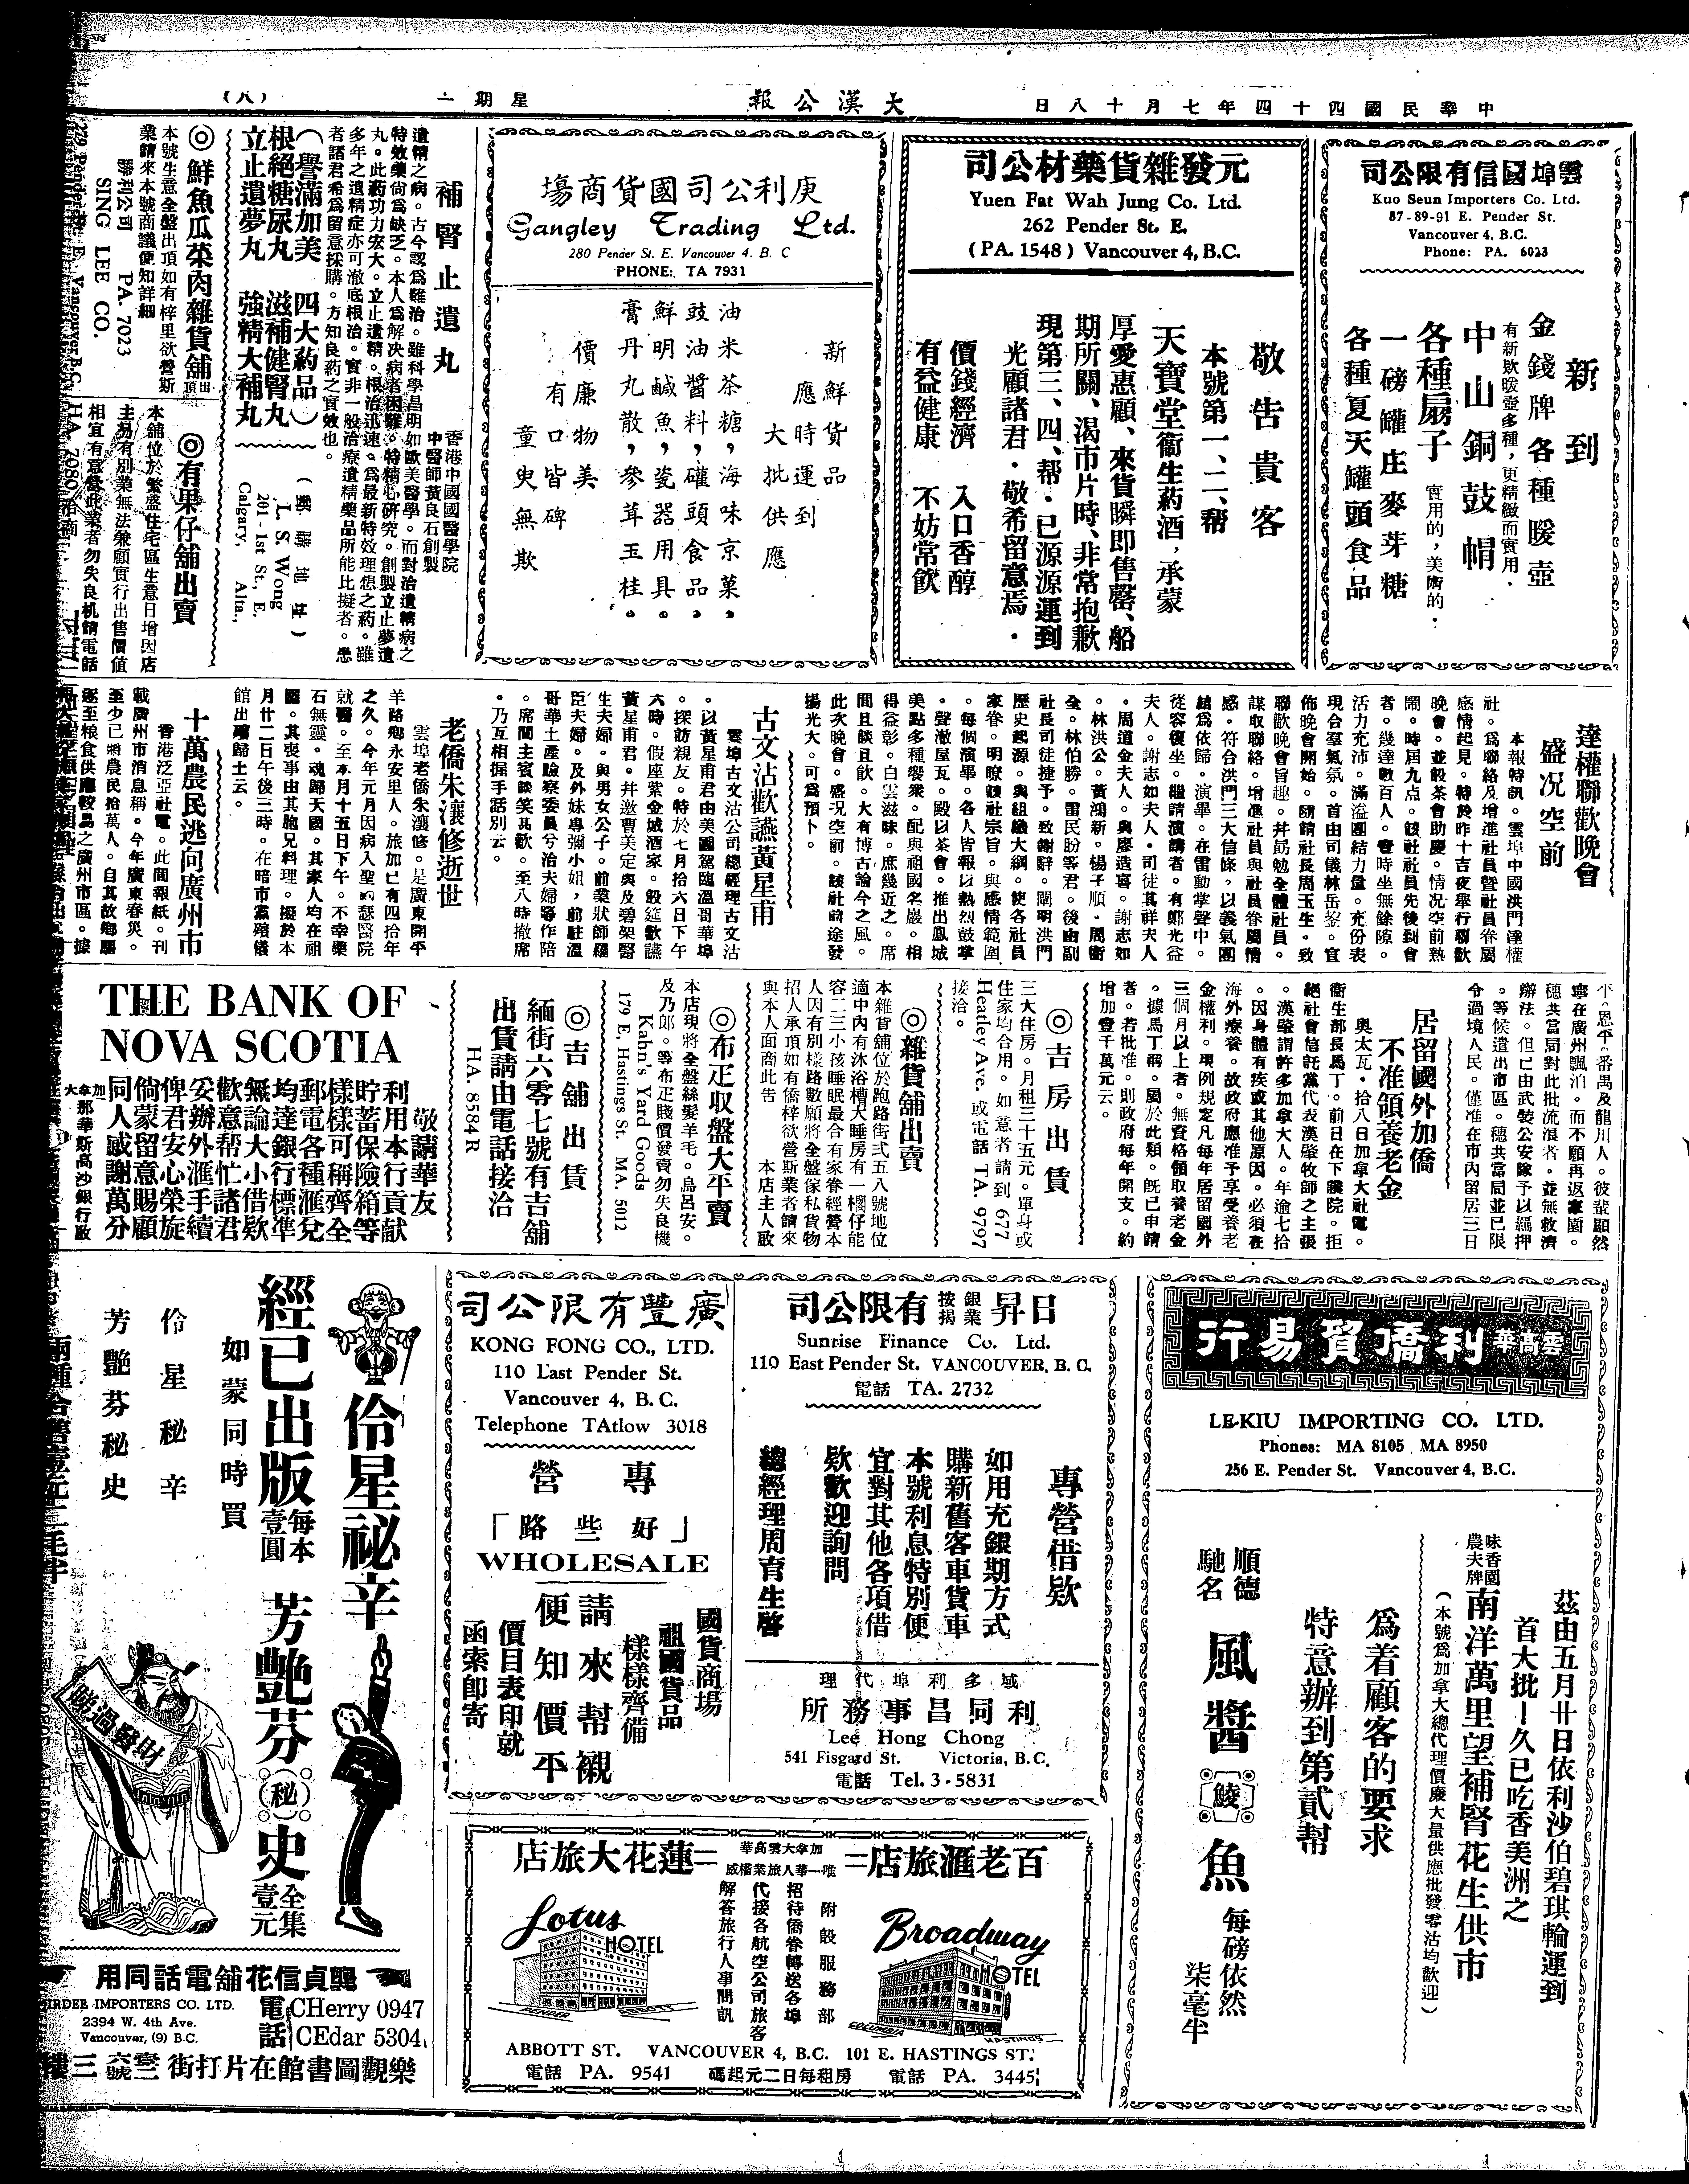 中華民國四十四年七月十八日
大漢公報
星期一
（八）
雲埠國信有限公司
Kuo Seun Importers Co. Ltd.
87-89-91 E. Pender St.
Vancouver 4, B.C.
Phone: PA. 6023
新到
金錢牌各種暖壺
有新欵暖壺多種，更精緻而實用．
中山銅鼓帽
各種扇子 實用的，美術的．
一磅罐庄麥芽糖
各種夏天罐頭食品
元發雜貨藥材公司
Yuen Fat Wah Jung Co. Ltd.
262 Pender St. E.
(PA. 1548) Vancouver 4, B.C.
敬告貴客
本號第一、二、幫
天寶堂衞生葯酒，承蒙
厚愛惠顧、來貨瞬即售罄、船
期所關、渴市片時、非常抱歉
現第三、四、幫．已源源運到
光顧諸君．敬希留意焉．
價錢經濟 入口香醇
有益健康 不妨常飲
庚利公司國貨商塲
Gangley Trading Ltd.
280 Pender St. E. Vancouver 4. B. C
PHONE: TA 7931
新鮮貨品
應時運到
大批供應
油米茶糖，海味京菓，
豉油醬料，礶頭食品。
鮮明鹹魚，瓷器用具。
膏丹丸散，參茸玉桂。
價廉物美
有口皆碑
童叟無欺
補腎止遺丸
香港中國國醫學院
中醫師黃良石創製
遺精之病。古今認爲難治。雖科學昌明如歐美醫學。而對治遺精病之
特效藥尙爲缺乏。本人爲解决病者困難。特精心研究。創製立止夢遺
丸。此葯功力宏大。立止遺精。根治迅速。爲最新特效理想之葯。雖
多年之遺精症亦可澈底根治。實非一般治療遺精藥品所能比擬者。患
者諸君希爲留意採購。方知良葯之實效也。
（譽滿加美 四大葯品）
根絕糖尿丸 滋補健腎丸
立止遺夢丸 強精大補丸
（郵購地址）
L. S. Wong
201 - 1st St., E.
Calgary, Alta.,
◎鮮魚瓜菜肉雜貨舖出頂
本號生意全盤出頂如有梓里欲營斯
業請來本號商議便知詳細
勝利公司 PA. 7023
SING LEE CO.
279 Pender St. E. Vancouver B.C.
◎有果仔舖出賣
本舖位於繁盛住宅區生意日增因店
主另有別業無法兼顧實行出售價值
相宜有意營此業者勿失良机請電話
HA. 7080 洽商
達權聯歡晚會
盛况空前
本報特訊。雲埠中國洪門達權
社。爲聯絡及增進社員曁社員眷屬
感情起見。特於昨十吉夜舉行聯歡
晚會。並設茶會助慶。情况空前熱
鬧。時屆九点。該社社員先後到會
者。幾達數百人。霎時坐無餘隙。
活力充沛。滿溢團結力量。充份表
現合羣氣氛。首由司儀林岳鋆。宣
佈晚會開始。隨請社長周玉生。致
聯歡晚會旨趣。幷勗勉全體社員。
謀取聯絡。增進社員與社員眷屬情
感。符合洪門三大信條，以義氣團
結爲依歸。演畢。在雷動掌聲中。
從容復坐。繼請演講者。有鄭光益
夫人。謝志如夫人．司徒其祥夫人
．周道金夫人。與慶造喜。謝志如
．林洪公。黃鴻新。楊子順．周衝
全。林伯勝。雷民盼等君。後由副
社長司徒捷予。致謝辭。闡明洪門
歷史起源。與組織大綱。使各社員
家眷。明瞭該社宗旨。與感情範圍
。每個演畢。各人皆報以熱烈鼓掌
。聲澈屋瓦。殿以茶會。推出鳳城
美點多種饗衆。配與祖國名巖。相
得益彰。白雲滋味。庶幾近之。席
間且談且飲。大有博古論今之風。
此次晚會。盛况空前。該社前途發
揚光大。可爲預卜。
古文沾歡讌黃星甫
雲埠古文沾公司總經理古文沾
。以黃星甫君由美國駕臨溫哥華埠
。探訪親友。特於七月拾六日下午
六時。假座紫金城酒家。設筵歡讌
黃星甫君。幷邀曹美定與及碧架醫
生夫婦。與男女公子。前業狀師羅
臣夫婦。及外妹專彌小姐，前駐溫
哥華土產驗察委員兮治夫婦等作陪
。席間主賓談笑甚歡。至八時撤席
。乃互相握手話別云。
老僑朱瀼修逝世
雲埠老僑朱瀼修。是廣東開平
羊路鄉永安里人。旅加已有四拾年
之久。今年元月因病入聖約瑟醫院
就醫。至本月十五日下午。不幸藥
石無靈。魂歸天國。其家人均在祖
國。其喪事由其胞兄料理。擬於本
月廿二日午後三時。在暗市黨殯儀
館出殯歸土云。
十萬農民逃向廣州市
香港泛亞社電。此間報紙。刊
載廣州市消息稱。今年廣東春災。
至少已將農民拾萬人。自其故鄉驅
逐至粮食供應較爲之廣州市區。據
平恩平。番禺及龍川人。彼輩顯然
寧在廣州飄泊。而不願再返家園。
穗共當局對此批流浪者。並無救濟
辦法。但已由武裝公安隊予以羈押
。等候遣出市區。穗共當局並已限
令過境人民。僅准在市內留居三日
居留國外加僑
不准領養老金
奧太瓦．拾八日加拿大社電。
衞生部長馬丁。前日在下議院。拒
絕社會信託黨代表漢肇牧師之主張
。漢肇謂許多加拿大人。年逾七拾
。因身體有疾或其他原因。必須在
海外療養。故政府應准予享受養老
金權利。現例規定凡每年居留國外
三個月以上者。無資格領取養老金
。據馬丁稱。屬於此類。旣已申請
者。若批准。則政府每年開支。約
增加壹千萬元云。
◎吉房出賃
三大住房。月租三十五元。單身或
住家均合用。如意者請到 677
Heatley Ave. 或電話 TA. 9797
接洽。
◎雜貨舖出賣
本雜貨舖位於跑路街弍五八號地位
適中內有沐浴槽大睡房有一櫊仔能
容二三小孩睡眠最合有家眷經營本
人因有別樣路數願將全盤傢私貨物
招人承頂如有僑梓欲營斯業者請來
與本人面商此告 本店主人啟
◎布疋収盤大平賣
本店現將全盤絲髮羊毛。烏呂安。
及乃郎。等布疋賤價發賣勿失良機
Kahn's Yard Goods
179 E, Hastings St. MA. 5012
◎吉舖出賃
緬街六零七號有吉舖
出賃請由電話接洽
HA. 8584 R
THE BANK OF
NOVA SCOTIA
敬請華友
利用本行貢献
貯蓄保險箱等
樣樣可稱齊全
郵電各種匯兌
均達銀行標準
無論大小借欵
歡意帮忙諸君
妥辦外滙手續
俾君安心榮旋
倘蒙留意賜顧
同人感謝萬分
加拿大那華斯高沙銀行啟
雲高華利僑貿易行
LEKIU IMPORTING CO. LTD.
Phones: MA 8105 MA 8950
256 E. Pender St. Vancouver 4, B.C.
茲由五月廿日依利沙伯碧琪輪運到
首大批—久已吃香美洲之
味香園
農夫牌
南洋萬里望補腎花生供市
（本號爲加拿大總代理價廉大量供應批發零沽均歡迎）
爲着顧客的要求
特意辦到第貳幫
順德馳名 風醬鯪魚 每磅依然柒毫半
日昇銀業按揭有限公司
Sunrise Finance Co. Ltd.
110 East Pender St. VANCOUVER, B. C.
電話 TA. 2732
專營借欵
如用充銀期方式
購新舊客車貨車
本號利息特別便
宜對其他各項借
欵歡迎詢問
總經理周育生啓
域多利埠代理
利同昌事務所
Lee Hong Chong
541 Fisgard St. Victoria, B.C.
電話 Tel. 3-5831
廣豐有限公司
KONG FONG CO., LTD.
110 East Pender St.
Vancouver 4, B. C.
Telephone TAtlow 3018
專營
「好些路」
WHOLESALE
國貨商場
祖國貨品
樣樣齊備
請來幫襯
便知價平
價目表印就
函索卽寄
伶星祕辛
經已出版 每本壹圓
芳艷芬（秘）史 全集壹元
如蒙同時買
伶星秘辛
芳艷芬秘史
財發過淸
龔貞信花舖電話同用
IRDER IMPORTERS CO. LTD.
2394 W. 4th Ave.
Vancouver, (9) B.C.
電話
CHerry 0947
CEdar 5304
樂觀圖書館在片打街壹三六號三樓
百老滙旅店＝
加拿大雲高華
唯一華人旅業權威
＝蓮花大旅店
Broadway HOTEL
COLUMBIA HASTINGS
附設服務部
招待僑眷轉送各埠
代接各航空公司旅客
解答旅行人事問訊
Lotus HOTEL
PENDER ABBOTT
ABBOTT ST. VANCOUVER 4, B.C. 101 E. HASTINGS ST.
電話 PA. 9541 房租每日二元起碼 電話 PA. 3445